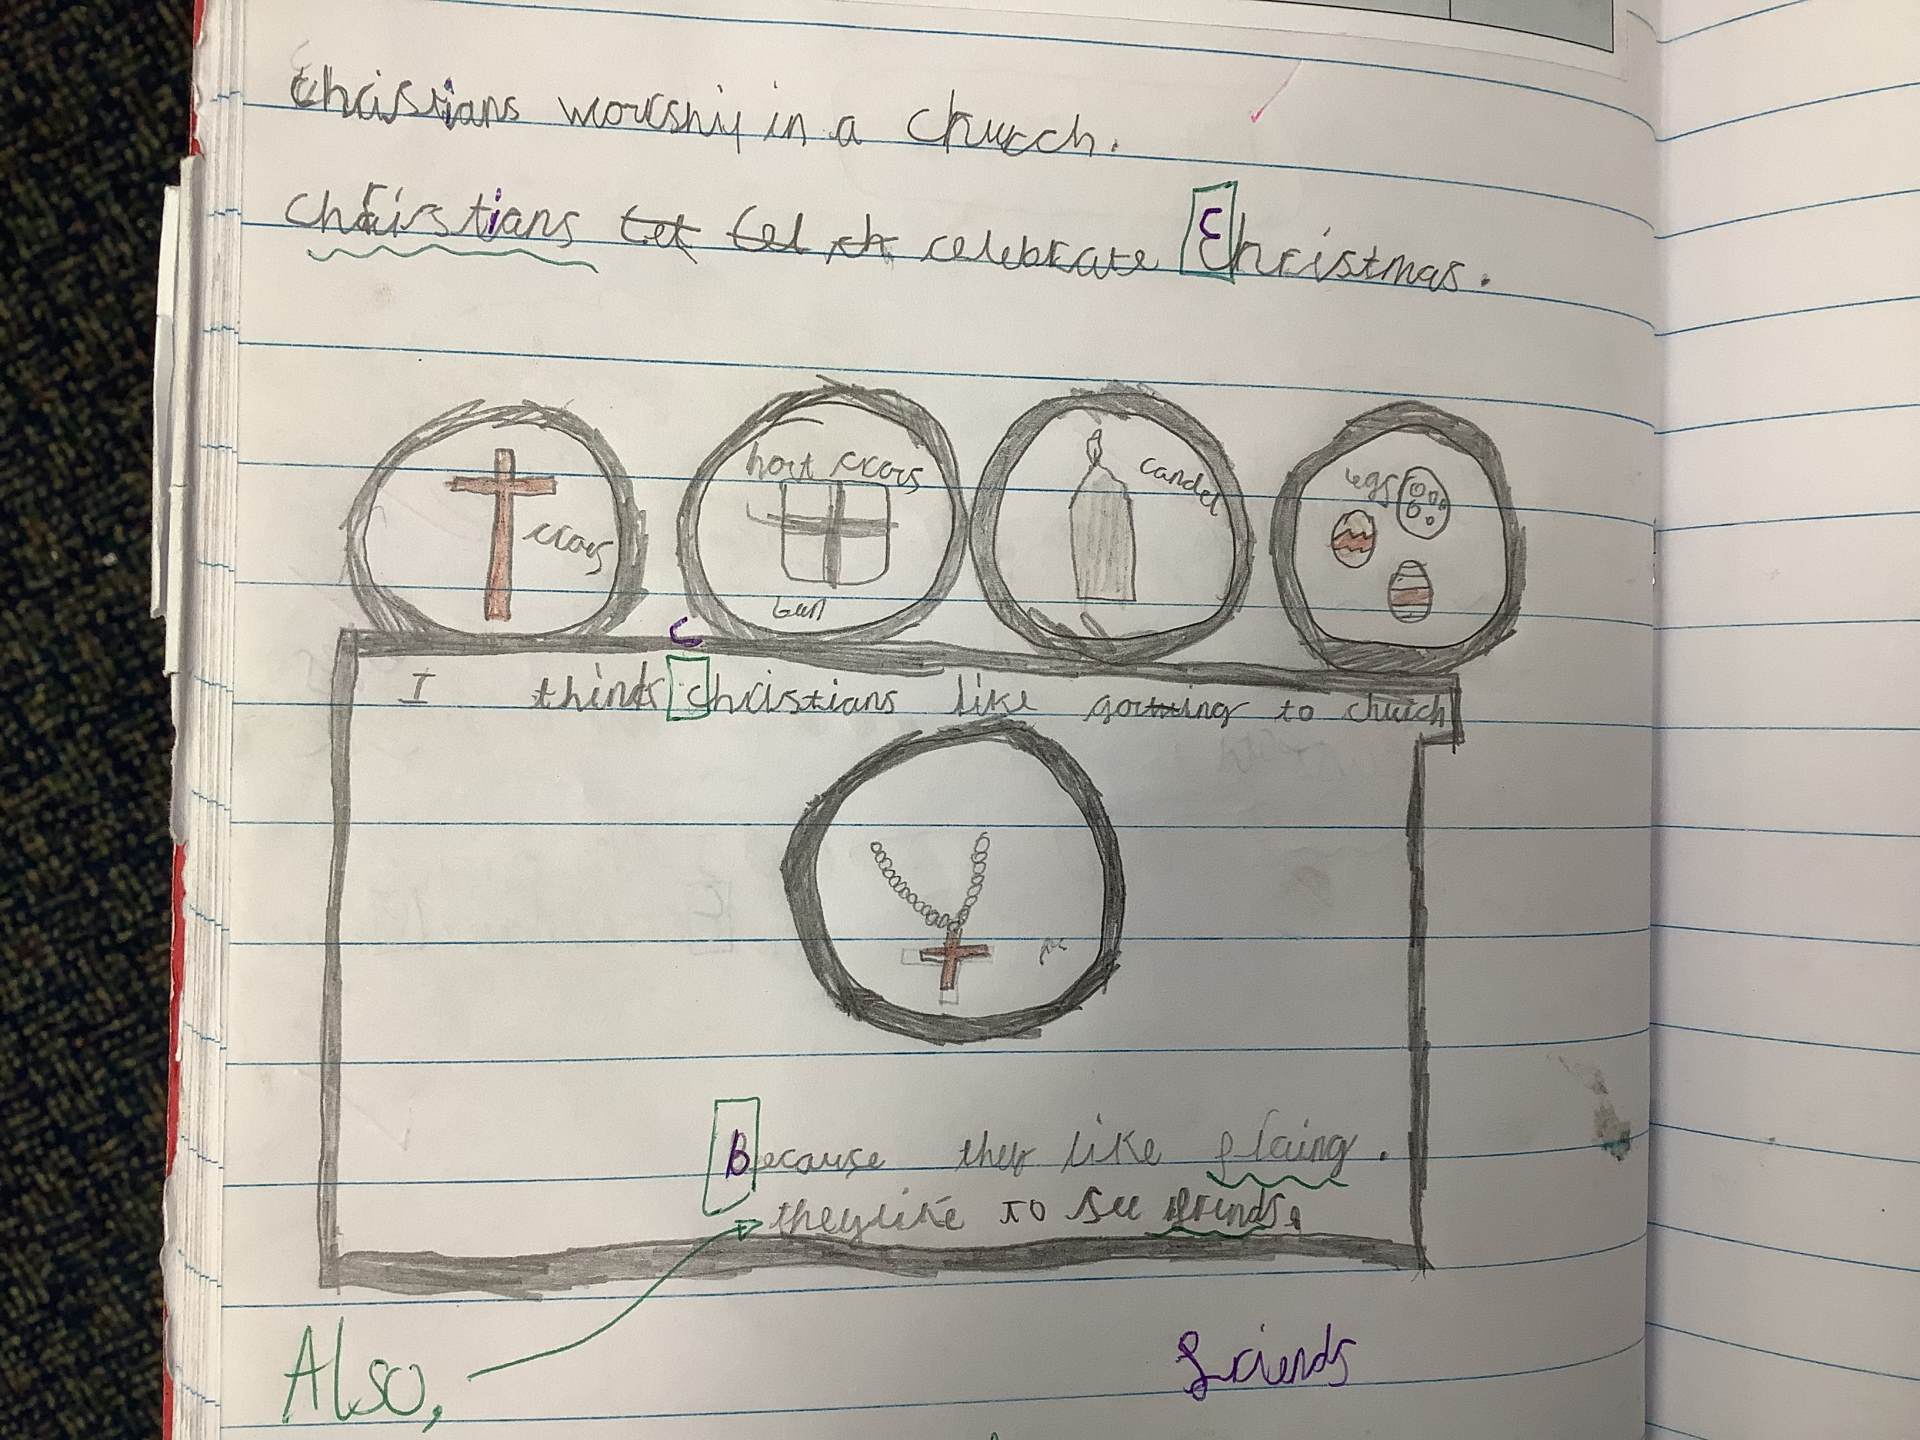 Christians worship in a church.
Christians celebrate Christmas.
hort cross
candel
egs
cross
bun
C
I think Christians like going to church
Because they like plaing.
they like to see frinds.
Also,
friends